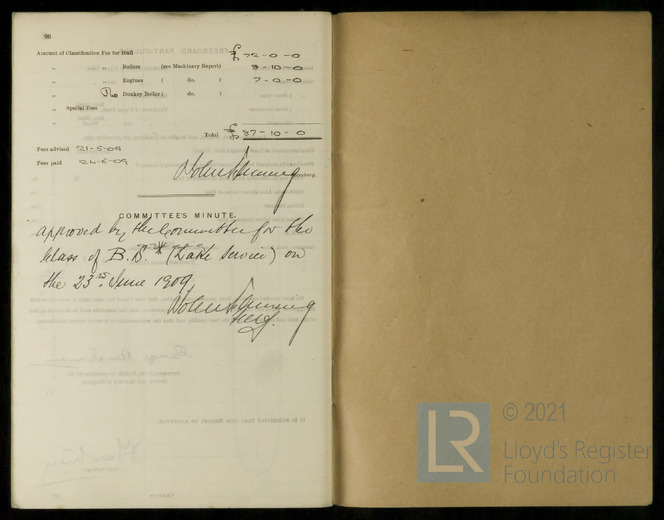 26
Amount of Classification Fee for Hull £72-0-0
" " Boilers (see Machinery Report) 8-10-0
" " Engines ( do. ) 7-0-0
" No Donkey Boiler ( do. )
" Special Fees
"
Total £87-10-0
Fees advised 21-5-09
Fees paid 24-5-09
Secretary.
COMMITTEE'S MINUTE.
approved by the Committee for the
Class of B.S.* (Lake Service) on
the 23rd June 1909
Secy.
LR
© 2021
Lloyd's Register
Foundation